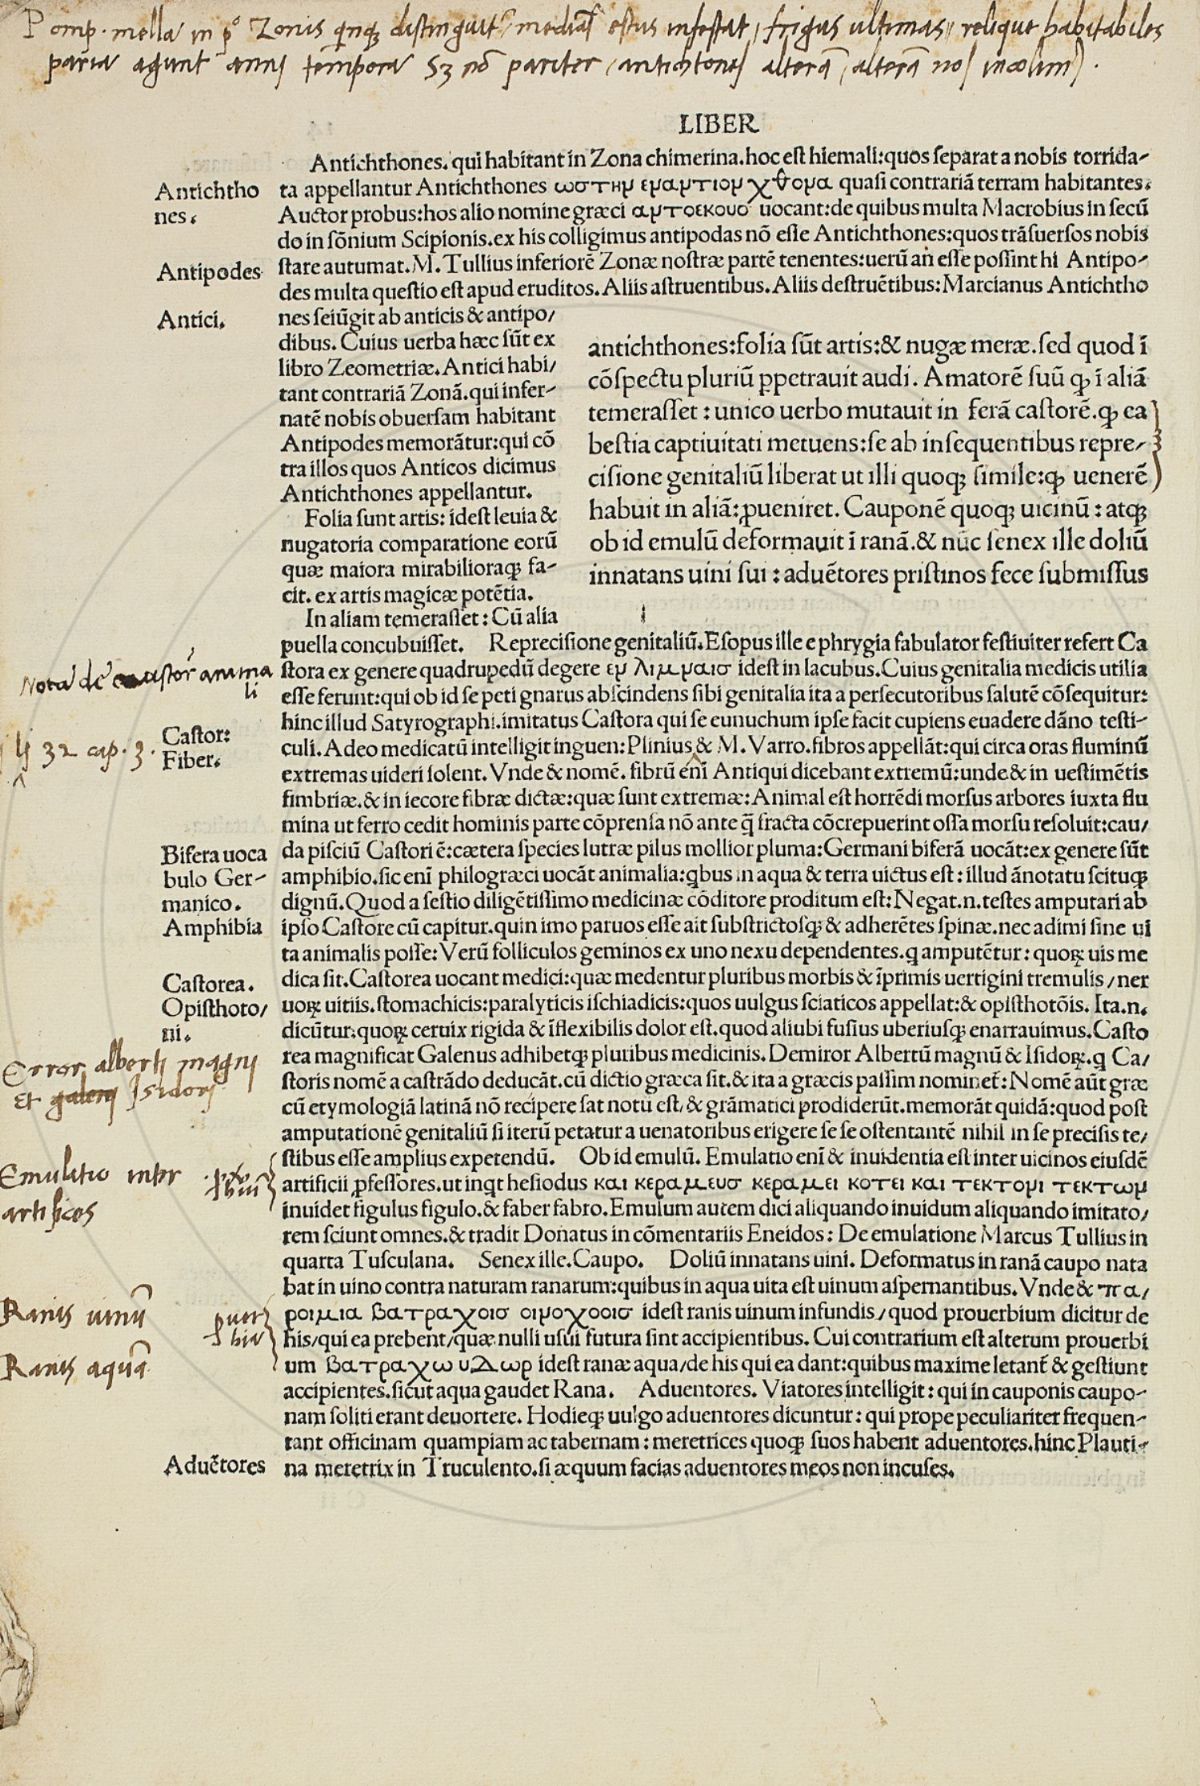 Pomp. mella in pº Zonis qinqꝫ distinguit² mediã estus infestat, frigus ultimas, relique habitabiles
paria agunt anni tempora Sꝫ nõ pariter, antichtones alterã, alterã nos incolim⁹.
LIBER
Antichthones. qui habitant in Zona chimerina. hoc est hiemali: quos separat a nobis torrida-
Antichtho
nes.
ta appellantur Antichthones ωστην εναντιον χθονα quasi contrariã terram habitantes.
Auctor probus: hos alio nomine græci αντοεκουσ uocant: de quibus multa Macrobius in secũ
do in sõnium Scipionis. ex his colligimus antipodas nõ esse Antichthones: quos trãsuersos nobis
Antipodes
stare autumat. M. Tullius inferiorẽ Zonæ nostræ partẽ tenentes: uerũ an esse possint hi Antipo-
des multa questio est apud eruditos. Aliis astruentibus. Aliis destruẽtibus: Marcianus Antichtho
Antici.
nes seiũgit ab anticis & antipo/
dibus. Cuius uerba hæc sũt ex
libro Zeometriæ. Antici habi/
tant contrariã Zonã. qui infer-
natẽ nobis obuersam habitant
Antipodes memorãtur: qui cõ
tra illos quos Anticos dicimus
Antichthones appellantur.
Folia sunt artis: idest leuia &
nugatoria comparatione eorũ
quæ maiora mirabilioraqꝫ fa-
cit. ex artis magicæ potẽtia.
In aliam temerasset: Cũ alia
antichthones: folia sũt artis: & nugæ meræ. sed quod ĩ
cõspectu pluriũ ꝑpetrauit audi. Amatorẽ suũ ꝙ ĩ aliã
temerasset: unico uerbo mutauit in ferã castorẽ. ꝙ ea
bestia captiuitati metuens: se ab insequentibus repre-
cisione genitaliũ liberat ut illi quoqꝫ simile: ꝙ uenerẽ
habuit in aliã: ꝓueniret. Cauponẽ quoqꝫ uicinũ: atqꝫ
ob id emulũ deformauit ĩ ranã. & nũc senex ille doliũ
innatans uini sui: aduẽtores pristinos fece submissus
puella concubuisset. Reprecisione genitaliũ. Esopus ille e phrygia fabulator festiuiter refert Ca
Nota de castor anima
li
stora ex genere quadrupedũ degere εν λιμναισ idest in lacubus. Cuius genitalia medicis utilia
esse ferunt: qui ob id se peti gnarus abscindens sibi genitalia ita a persecutoribus salutẽ cõsequitur:
hinc illud Satyrographi. imitatus Castora qui se eunuchum ipse facit cupiens euadere dãno testi-
Castor:
Fiber.
li 32 cap. 3.
culi. Adeo medicatũ intelligit inguen: Plinius & M. Varro. fibros appellãt: qui circa oras fluminũ
extremas uideri solent. Vnde & nomẽ. fibrũ enĩ Antiqui dicebant extremũ: unde & in uestimẽtis
fimbriæ. & in iecore fibræ dictæ: quæ sunt extremæ: Animal est horrẽdi morsus arbores iuxta flu
mina ut ferro cedit hominis parte cõprensa nõ ante q̃ fracta cõcrepuerint ossa morsu resoluit: cau/
Bifera uoca
bulo Ger-
manico.
Amphibia
da pisciũ Castori ẽ: cætera species lutræ pilus mollior pluma: Germani biferã uocãt: ex genere sũt
amphibio. sic enĩ philogræci uocãt animalia: qbus in aqua & terra uictus est: illud ãnotatu scituqꝫ
dignũ. Quod a sestio diligẽtissimo medicinæ cõditore proditum est: Negat. n. testes amputari ab
ipso Castore cũ capitur. quin imo paruos esse ait substrictosqꝫ & adherẽtes spinæ. nec adimi sine ui
ta animalis posse: Verũ folliculos geminos ex uno nexu dependentes. q amputẽtur: quoꝝ uis me
Castorea.
Opisthoto/
ni.
dica sit. Castorea uocant medici: quæ medentur pluribus morbis & ĩprimis uertigini tremulis / ner
uoꝝ uitiis. stomachicis: paralyticis ischiadicis: quos uulgus sciaticos appellat: & opisthotõis. Ita. n.
dicũtur: quoꝝ ceruix rigida & ĩflexibilis dolor est. quod aliubi fusius uberiusqꝫ enarrauimus. Casto
Error alberti magni
et galeni Isidori
rea magnificat Galenus adhibetqꝫ pluribus medicinis. Demiror Albertũ magnũ & Isidoꝝ. q Ca/
storis nomẽ a castrãdo deducãt. cũ dictio græca sit. & ita a græcis passim nominet̃: Nomẽ aũt græ
cũ etymologiã latinã nõ recipere sat notũ est, & grãmatici prodiderũt. memorãt quidã: quod post
amputationẽ genitaliũ si iterũ petatur a uenatoribus erigere se se ostentantẽ nihil in se precisis te/
stibus esse amplius expetendũ. Ob id emulũ. Emulatio enĩ & inuidentia est inter uicinos eiusdẽ
Emulatio inter
artifices
artificii ꝓfessores. ut inqt hesiodus και κεραμευσ κεραμει κοτει και τεκτονι τεκτων
inuidet figulus figulo. & faber fabro. Emulum autem dici aliquando inuidum aliquando imitato/
rem sciunt omnes. & tradit Donatus in cõmentariis Eneidos: De emulatione Marcus Tullius in
quarta Tusculana. Senex ille. Caupo. Doliũ innatans uini. Deformatus in ranã caupo nata
bat in uino contra naturam ranarum: quibus in aqua uita est uinum aspernantibus. Vnde & πα/
Ranis uinũ
ꝓuer
bia
Ranis aquã
ροιμια βατραχοισ οινοχοοισ idest ranis uinum infundis / quod prouerbium dicitur de
his / qui ea prebent / quæ nulli usui futura sint accipientibus. Cui contrarium est alterum prouerbi
um βατραχω υδωρ idest ranæ aqua / de his qui ea dant: quibus maxime letant̃ & gestiunt
accipientes. sicut aqua gaudet Rana. Aduentores. Viatores intelligit: qui in cauponis caupo-
nam soliti erant deuortere. Hodieqꝫ uulgo aduentores dicuntur: qui prope peculiariter frequen-
tant officinam quampiam ac tabernam: meretrices quoqꝫ suos habent aduentores. hinc Plauti-
Aduẽtores
na meretrix in Truculento. si æquum facias aduentores meos non incuses.